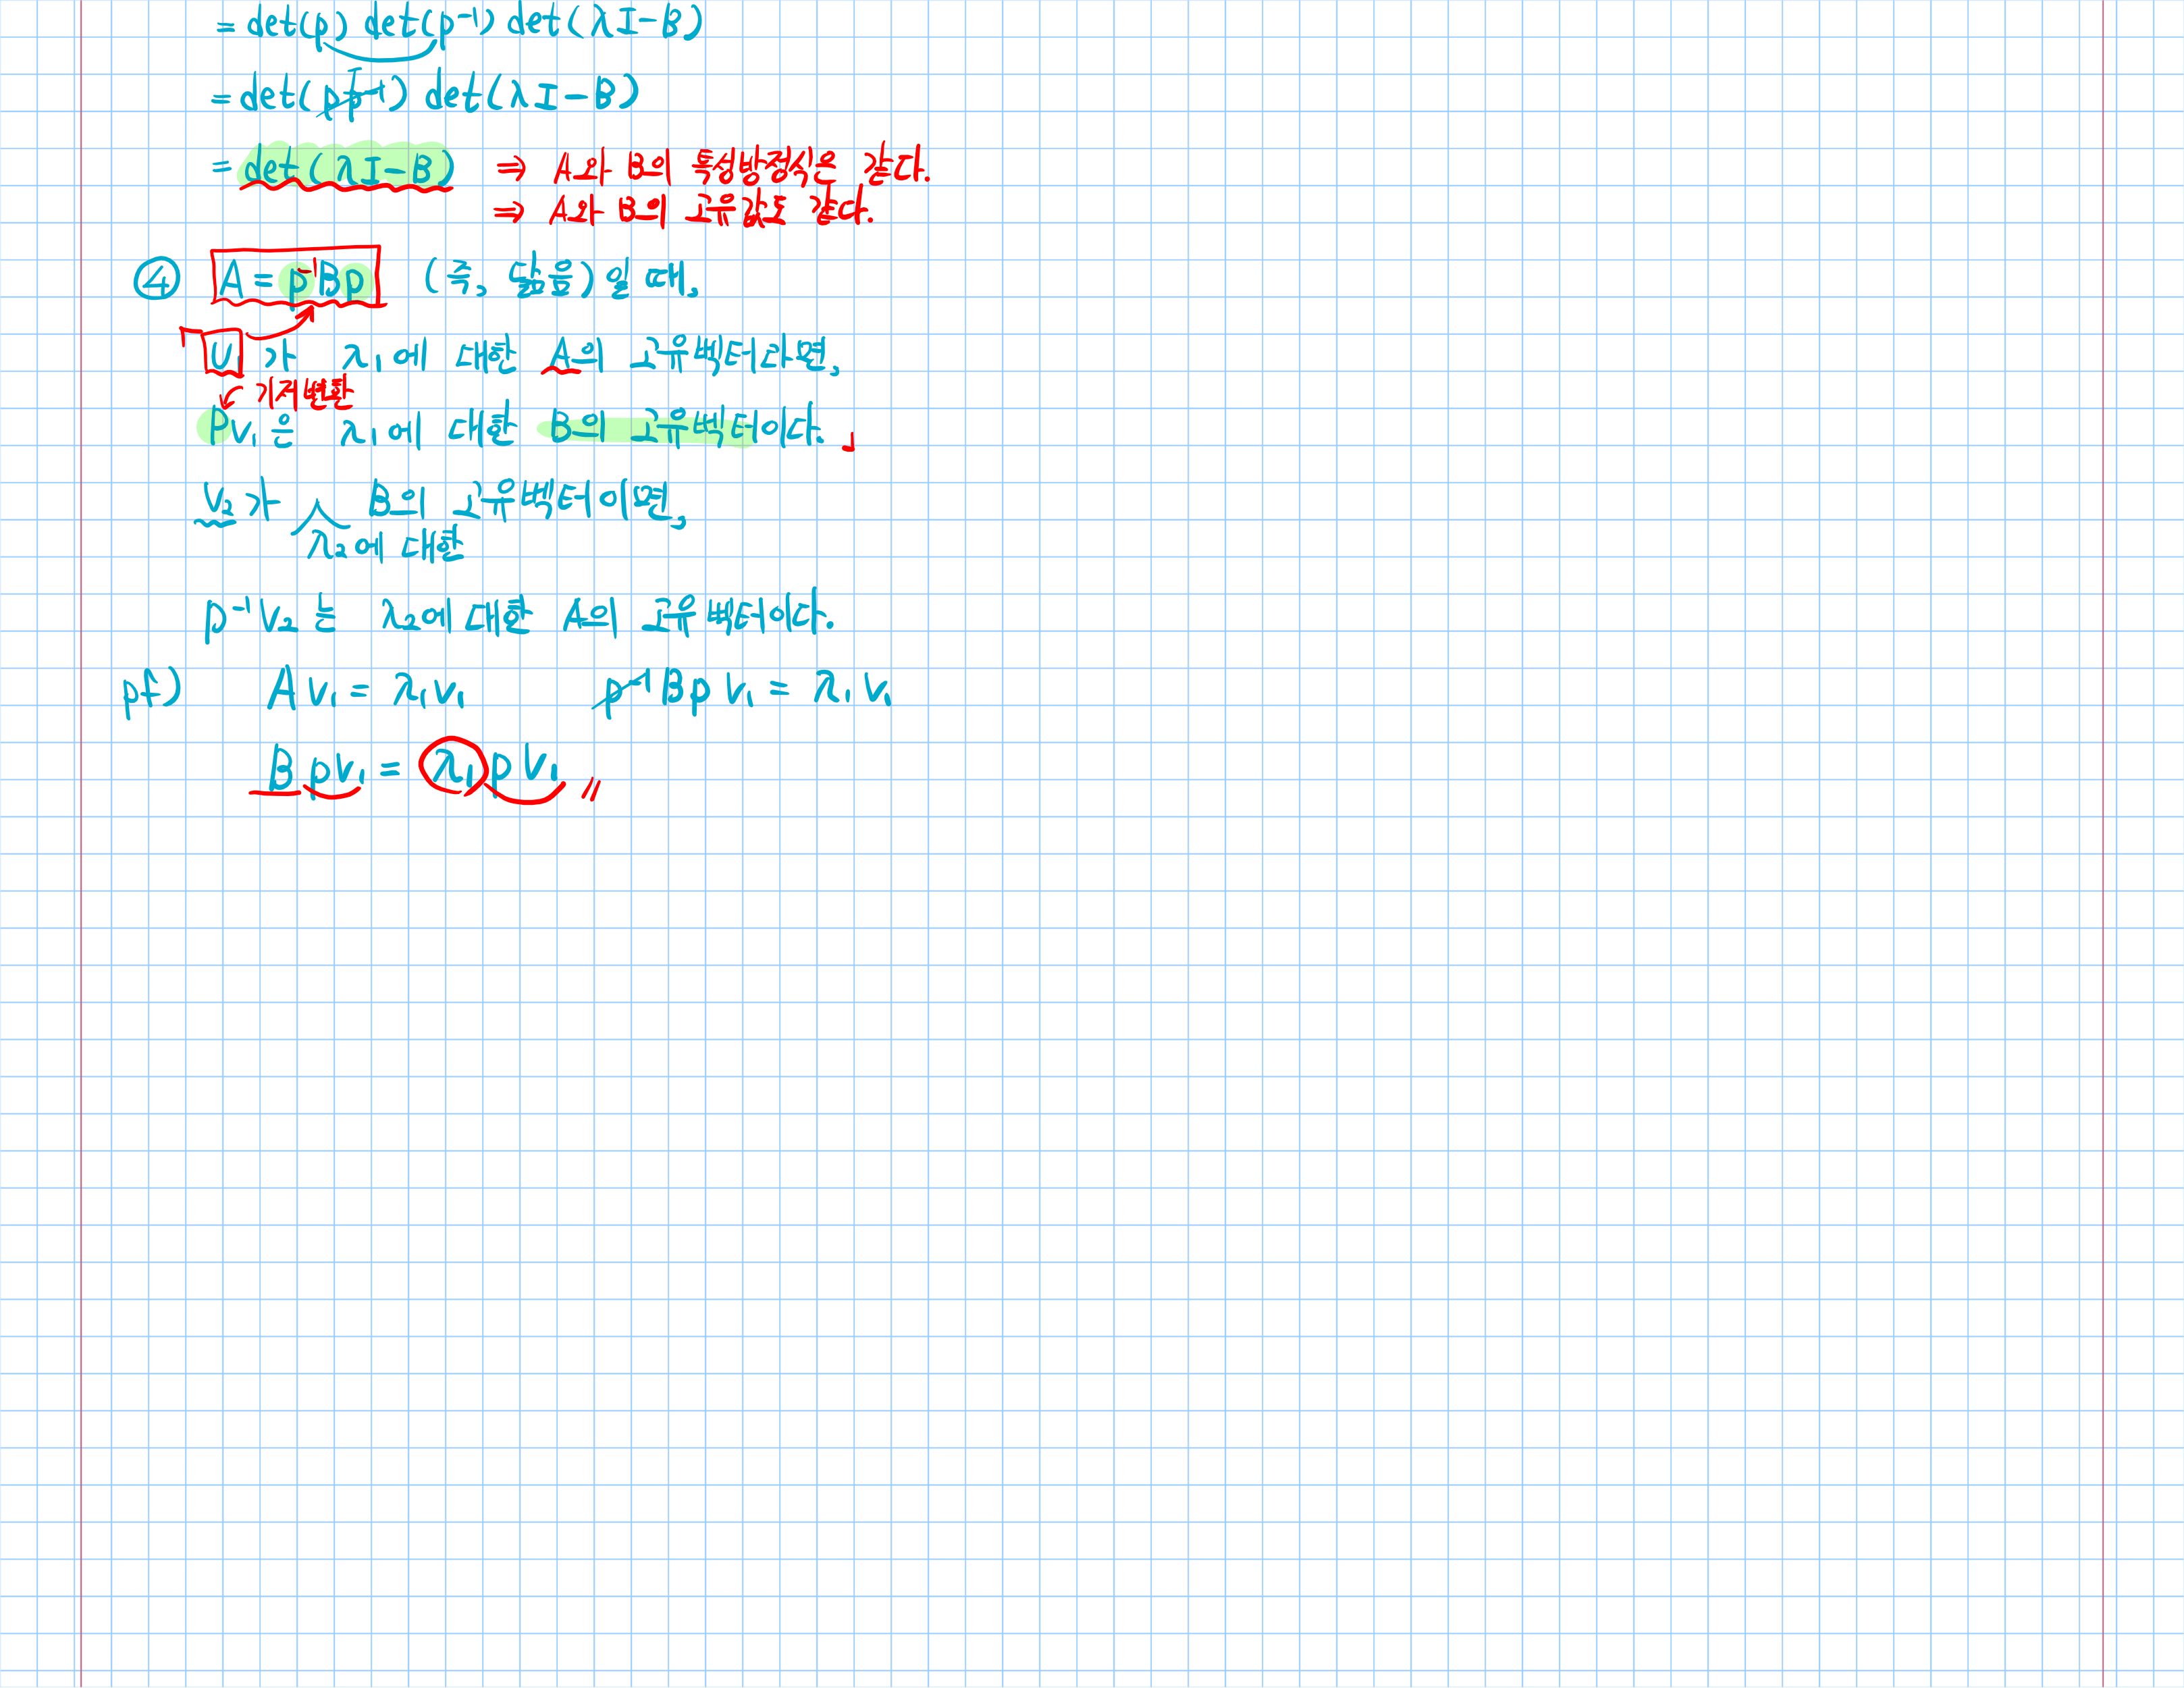 = det(p) det(p⁻¹) det(λI-B)
= det(pp⁻¹) det(λI-B)
= det(λI-B) ⇒ A와 B의 특성방정식은 같다.
⇒ A와 B의 고유값도 같다.
④ A = p⁻¹Bp (즉, 닮음)일 때,
「V₁가 λ₁에 대한 A의 고유벡터라면,
기저변환
PV₁은 λ₁에 대한 B의 고유벡터이다.」
V₂가 B의 고유벡터이면,
λ₂에 대한
p⁻¹V₂는 λ₂에 대한 A의 고유벡터이다.
pf) AV₁ = λ₁V₁ p⁻¹BpV₁ = λ₁V₁
BpV₁ = λ₁pV₁ 〃